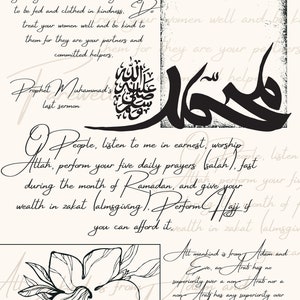 to be fed and clothed in kindness. Do
treat your women well and be kind to
them for they are your partners and
committed helpers.
Prophet Muhammad's
last sermon
صلى الله عليه وسلم
محمد
O People, listen to me in earnest, worship
Allah, perform your five daily prayers (salah), fast
during the month of Ramadan, and give your
wealth in zakat (almsgiving). Perform Hajj if
you can afford it.
All mankind is from Adam and
Eve, an Arab has no
superiority over a non-Arab nor a
non-Arab has any superiority over